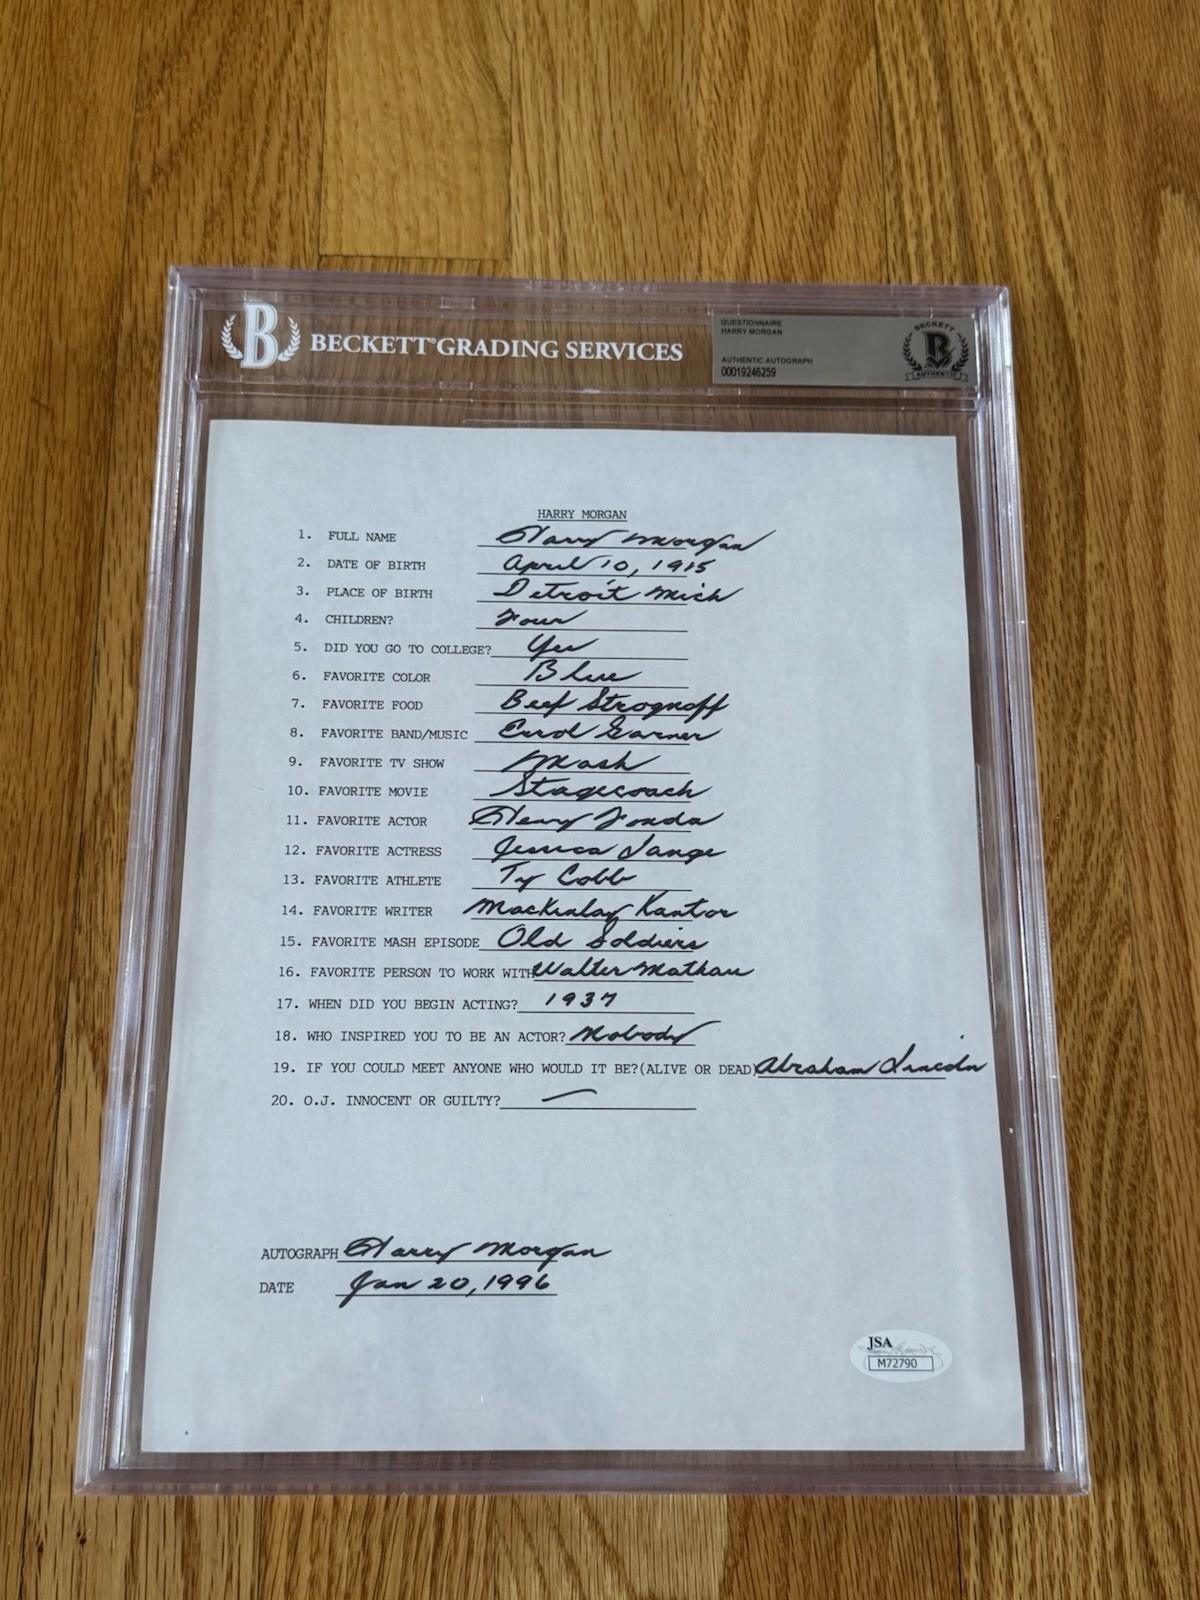 B BECKETT® GRADING SERVICES
QUESTIONNAIRE
HARRY MORGAN
AUTHENTIC AUTOGRAPH
00019246259
BECKETT
B
AUTHENTIC
HARRY MORGAN
1. FULL NAME Harry Morgan
2. DATE OF BIRTH April 10, 1915
3. PLACE OF BIRTH Detroit Mich
4. CHILDREN? Four
5. DID YOU GO TO COLLEGE? Yes
6. FAVORITE COLOR Blue
7. FAVORITE FOOD Beef Strognoff
8. FAVORITE BAND/MUSIC Errol Garner
9. FAVORITE TV SHOW Mash
10. FAVORITE MOVIE Stagecoach
11. FAVORITE ACTOR Henry Fonda
12. FAVORITE ACTRESS Jessica Lange
13. FAVORITE ATHLETE Ty Cobb
14. FAVORITE WRITER MacKinlay Kantor
15. FAVORITE MASH EPISODE Old Soldiers
16. FAVORITE PERSON TO WORK WITH Walter Mathau
17. WHEN DID YOU BEGIN ACTING? 1937
18. WHO INSPIRED YOU TO BE AN ACTOR? Nobody
19. IF YOU COULD MEET ANYONE WHO WOULD IT BE?(ALIVE OR DEAD) Abraham Lincoln
20. O.J. INNOCENT OR GUILTY? —
AUTOGRAPH Harry Morgan
DATE Jan 20, 1996
JSA
M72790